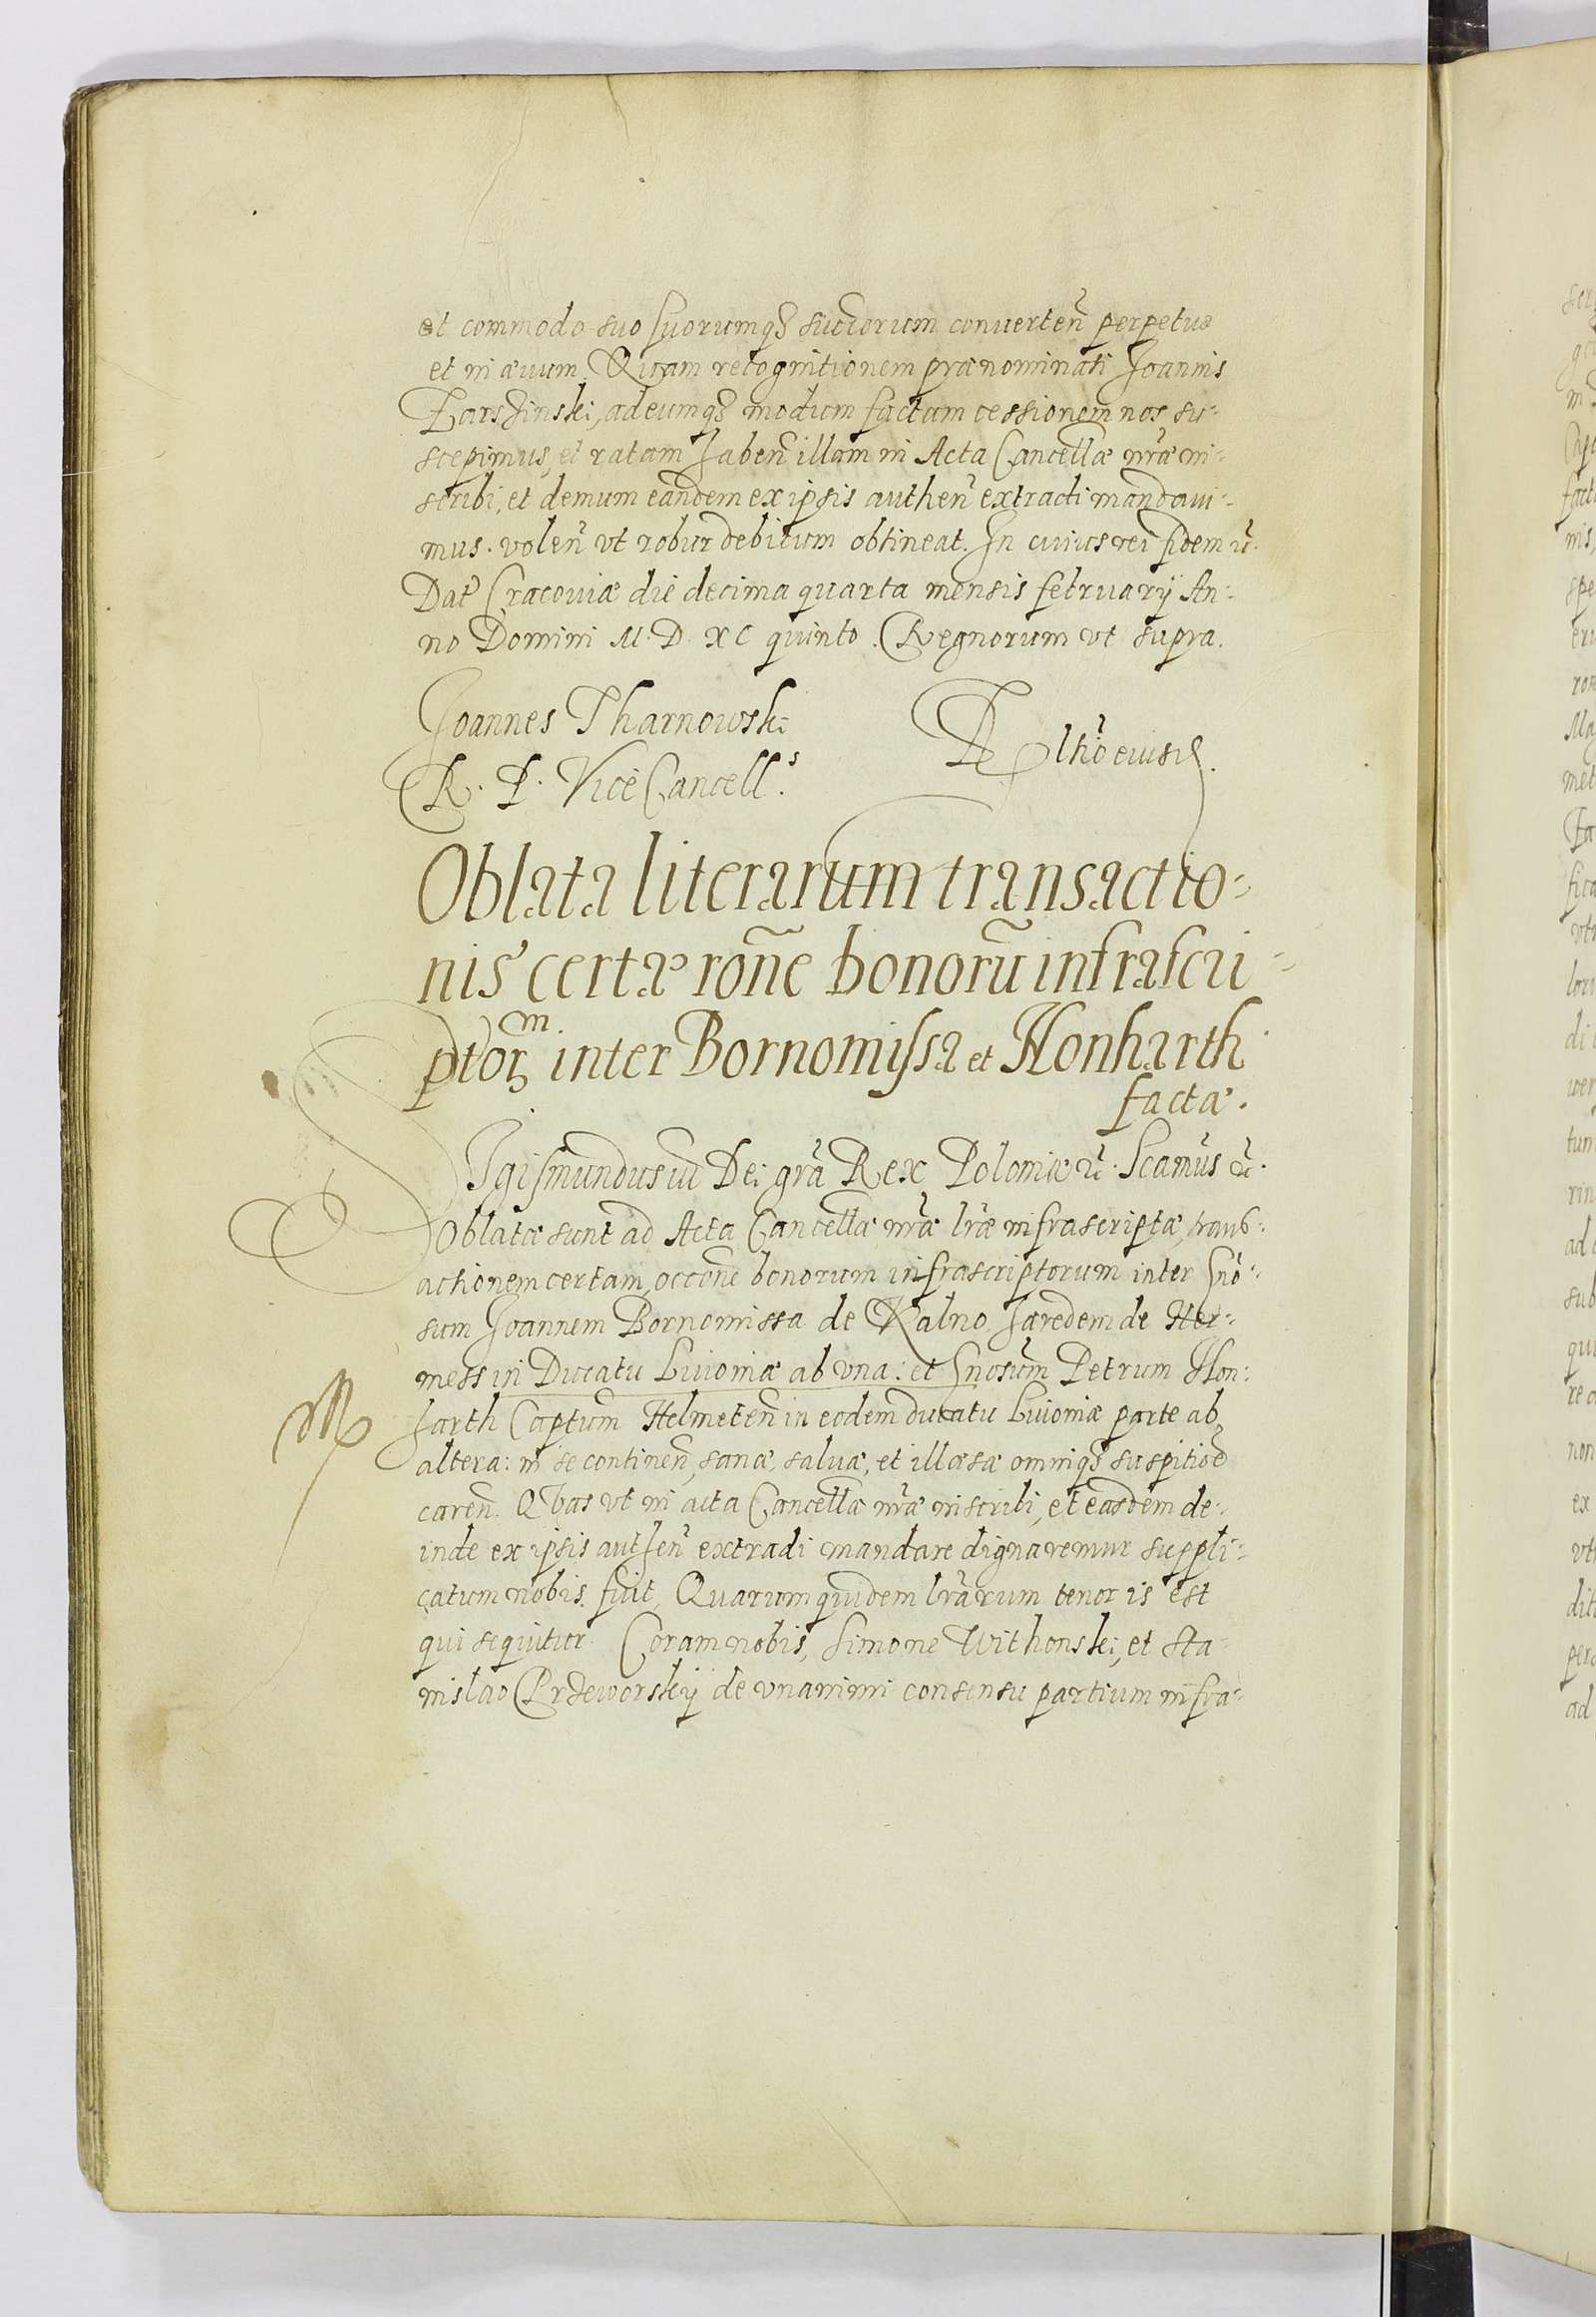 et commodo suo suorumq₃ succorum conuerten̄ perpetuo
et in æuum. Quam recognitionem prænominati Joannis
Zarszinski, ad eumq₃ modum factam cessionem nos su-
scepimus, et ratam haben̄ illam in Acta Cancellæ nr̄æ in-
scribi, et demum eandem ex ipsis authen̄ extradi mandaui-
mus. volen̄ vt robur debitum obtineat. In cuius rei fidem
Dat̄ Cracouiæ die decima quarta mensis februarÿ An-
no Domini M.D.XC quinto. Regnorum vt supra.
Joannes Tharnowski
R. P. Vice Cancell.s
Oblata literarum transactio-
nis certæ rōne bonorū infrascri-
ptor̄m inter Bornomissa et Honharth
factæ.
SIgismundus iii Dei grā Rex Poloniæ Scamūs
Oblatæ sunt ad Acta Cancellæ nr̄æ lr̄æ infrascriptæ, trans-
actionem certam, occōne bonorum infrascriptorum inter Gnō-
sum Joannem Bornomissa de Kalno, hæredem de Her-
mess in Ducatu Liuoniæ ab vna: et Gnosum Petrum Hon-
harth Captum Helmeten̄ in eodem ducatu Liuoniæ parte ab
altera: in se continen̄, sanæ, saluæ, et illæsæ omniq₃ suspitiōe
caren̄. Quas vt in acta Cancellæ nr̄æ inscribi, et easdem de-
inde ex ipsis authen̄ extradi mandare dignaremur suppli-
catum nobis fuit, Quarum quidem lr̄arum tenor is est
qui sequitur. Coram nobis, Simone Withonski, et Sta-
nislao Przeworskÿ de vnanimi consensu partium infra-